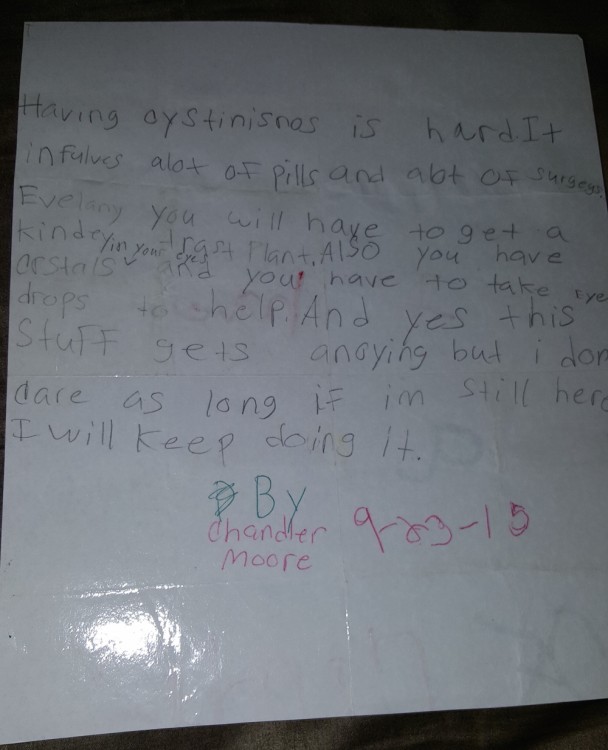 Having cystinisnos is hard.It
infulves alot of pills and alot of surgeys.
Evelany you will have to get a
kindey trast Plant. Also you have
crstals in your eyes and you have to take eye
drops to help. And yes this
Stuff gets anoying but i don
care as long if im still here
I will keep doing it.
By
Chandler
Moore
9-23-15